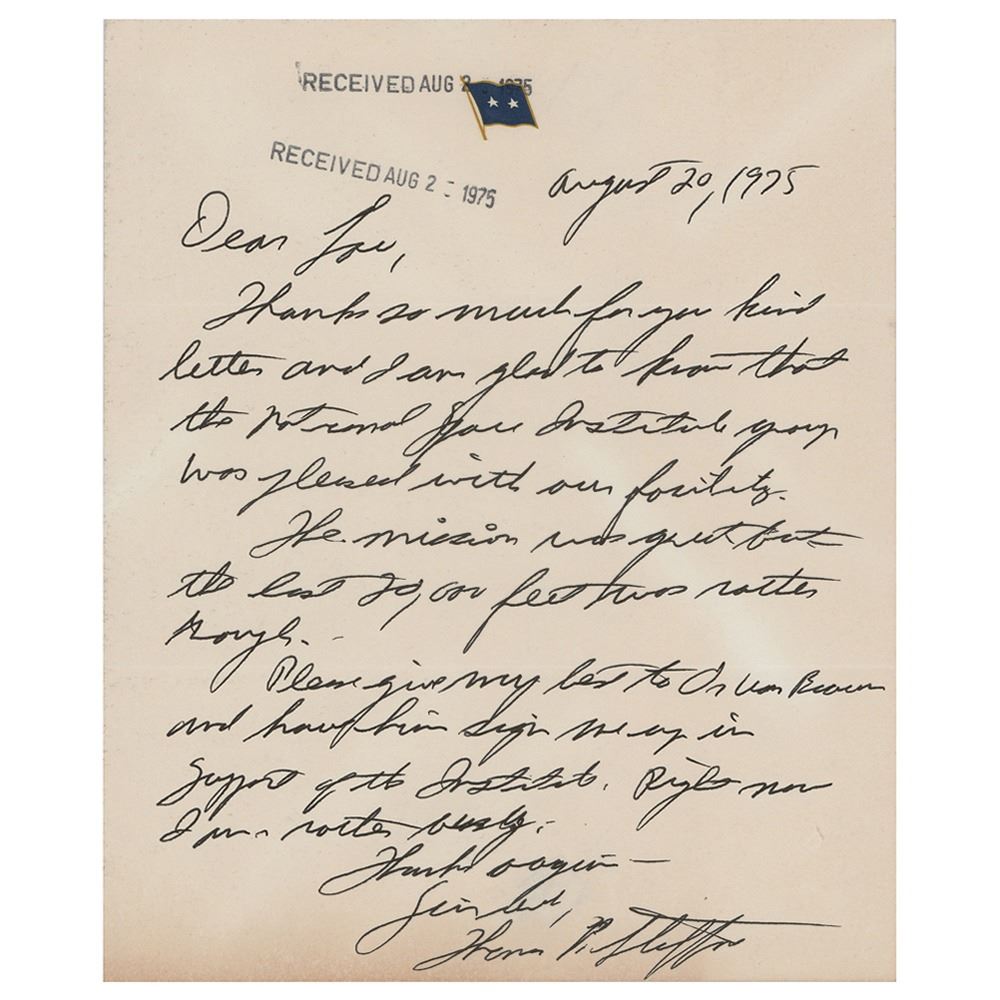 RECEIVED AUG 2 1975
RECEIVED AUG 2 1975
August 20, 1975
Dear
Thanks so much for your kind
letter and I am glad to know that
the National Space Institute group
was pleased with our facility.
The mission was great but
the last 20,000 feet was rather
rough.
Please give my best to Dr von Braun
and have him sign me up in
support of the Institute. Right now
I am rather busy.
Thanks again —
Sincerely,
Thomas P. Stafford